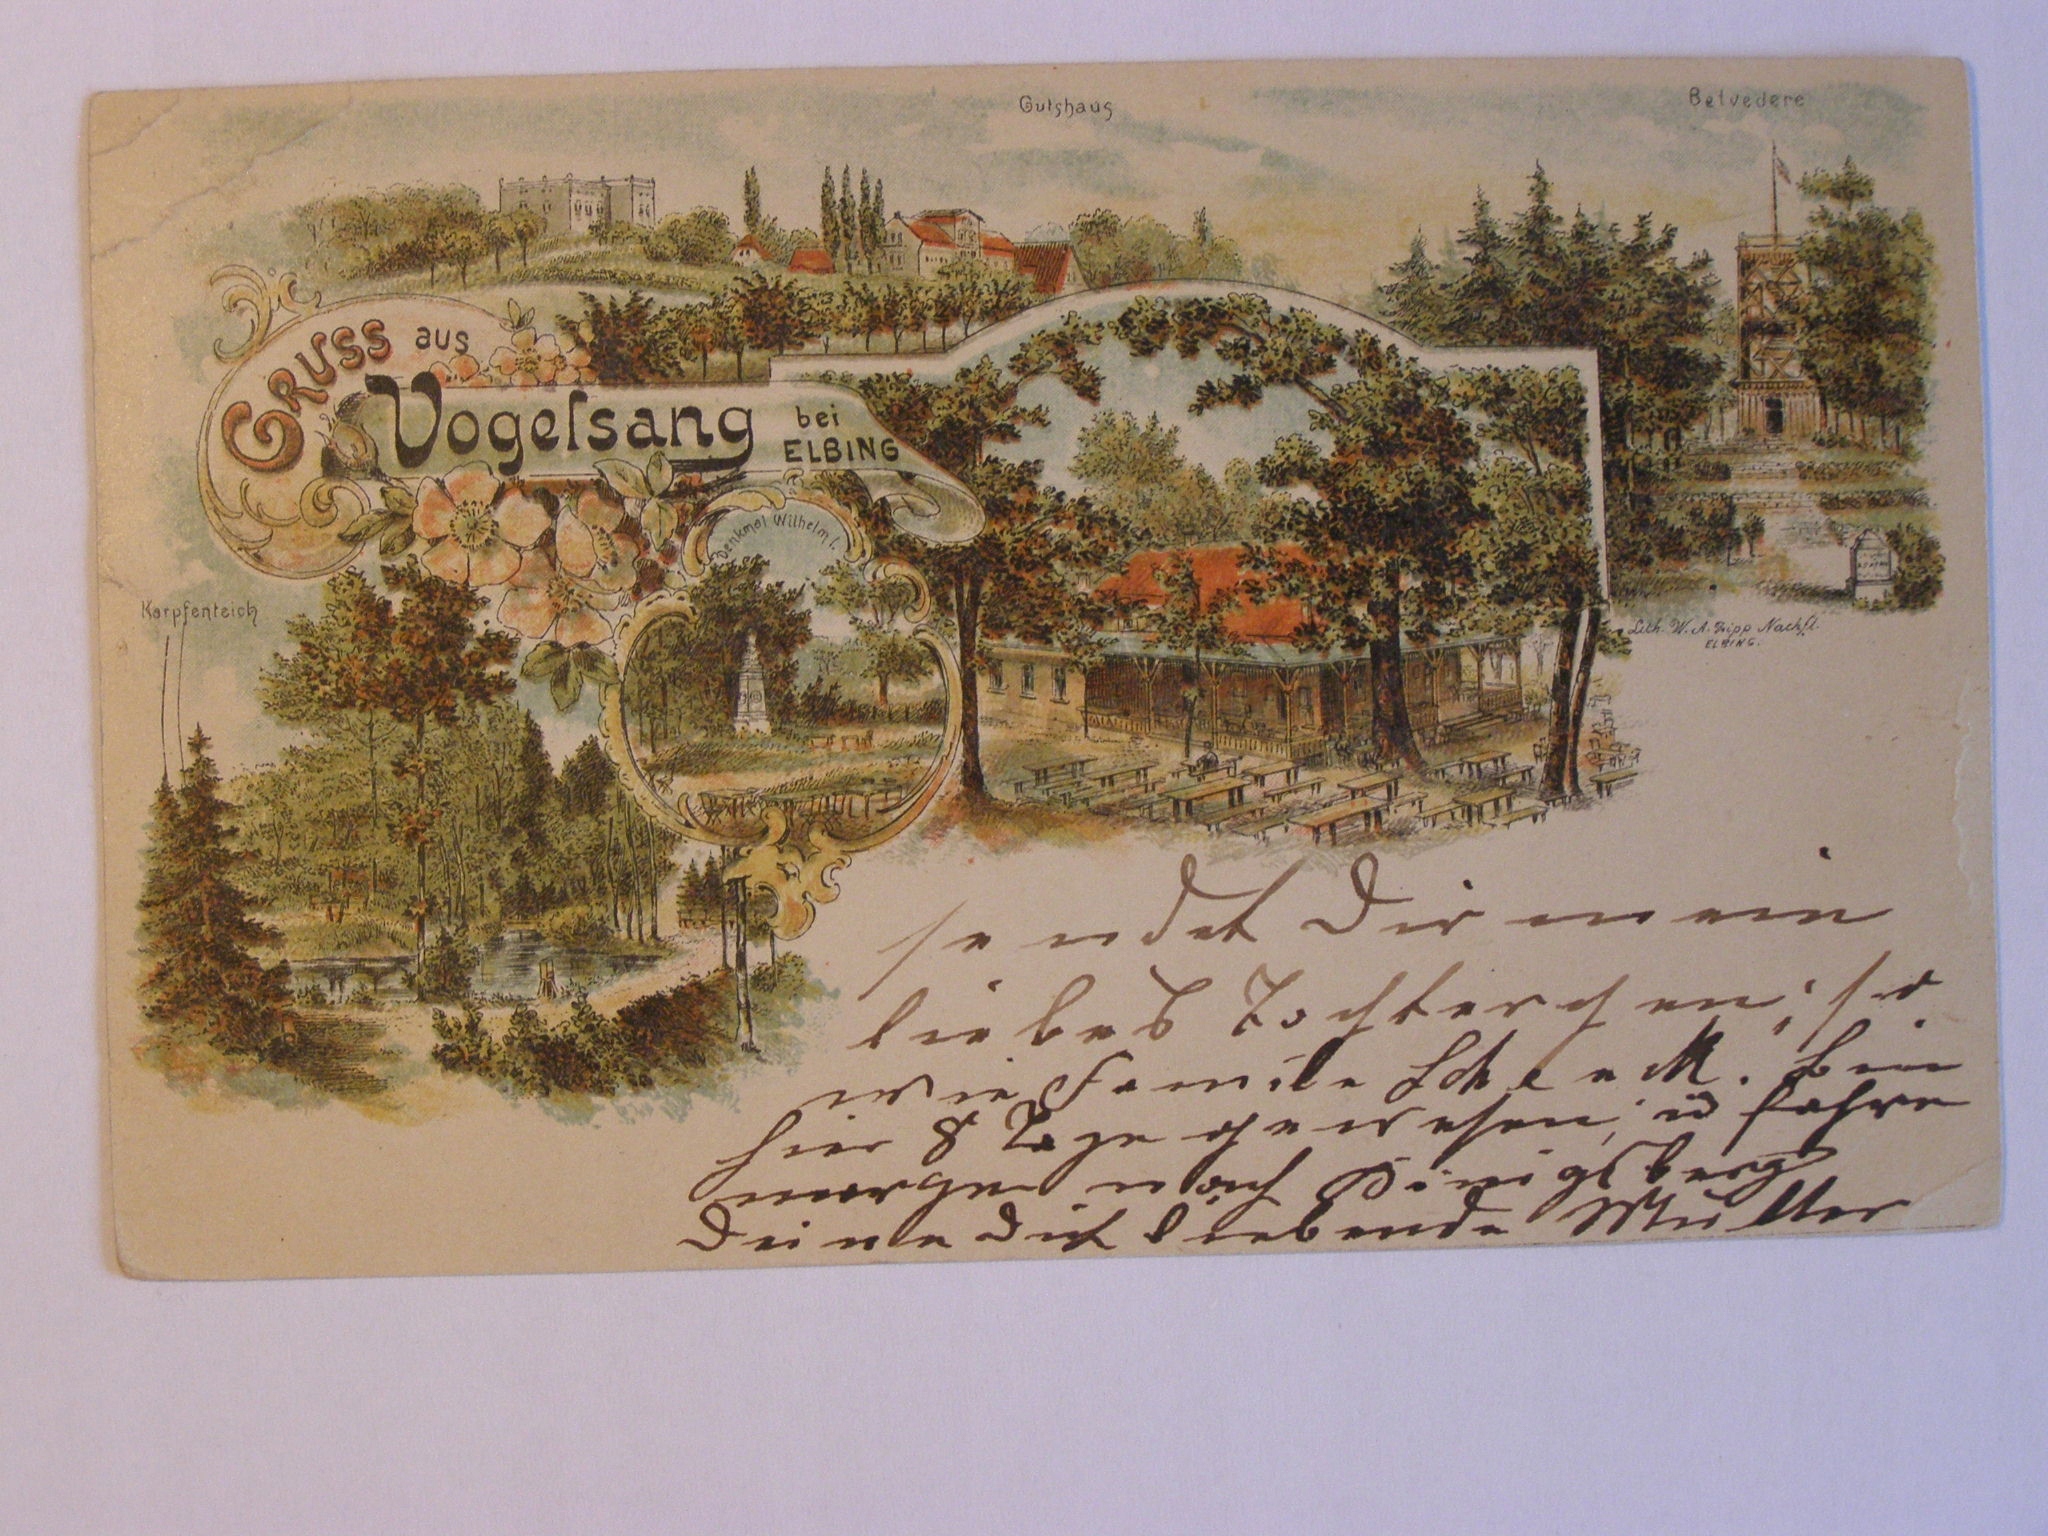 Gutshaus
Belvedere
GRUSS aus
Vogelsang bei
ELBING
Denkmal Wilhelm I.
Karpfenteich
Lith. W. A. Zipp Nachfl.
ELBING.
sendet Dir mein
liebes Tochterchen, 
wie Familie bin
hier 8 Tage gewesen, u fahre
morgen nach Königsberg
Deine Dich liebende Mutter